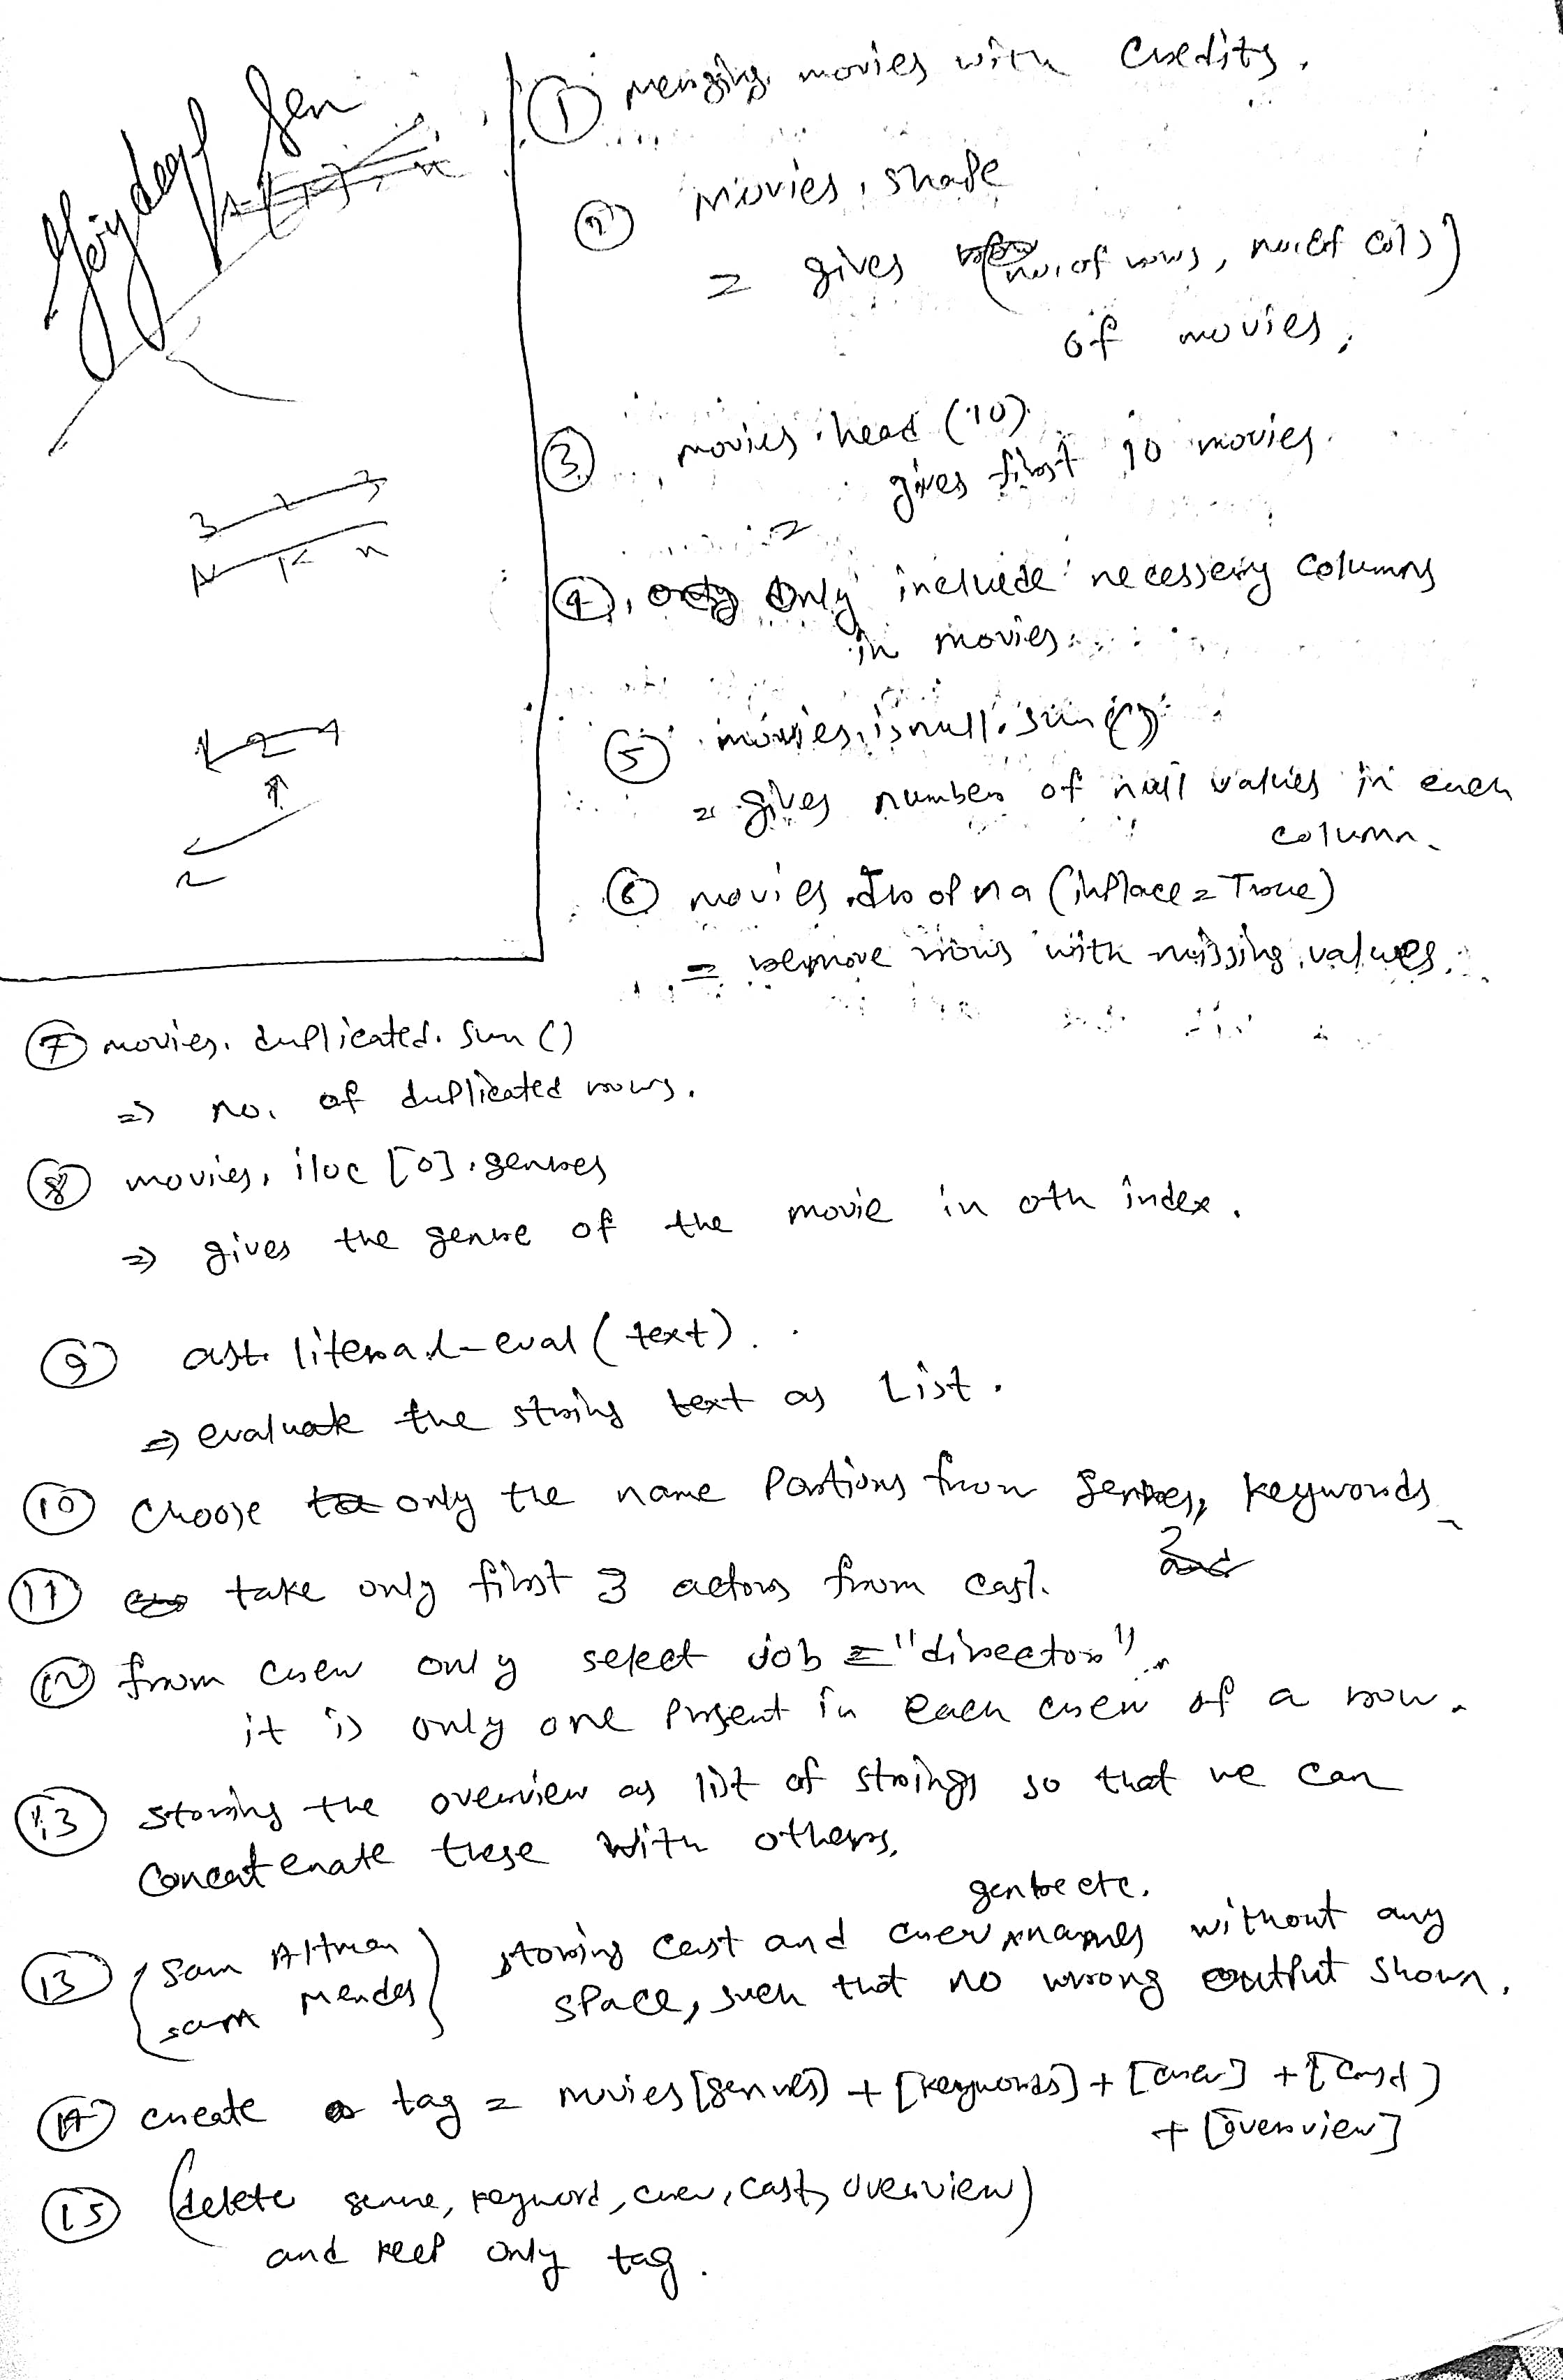 Joydeep Sen
① Merging movies with credits.
② Movies.shape
= gives (no. of rows, no. of cols)
of movies.
③ movies.head (10)
= gives first 10 movies.
④. Only include necessery columns
in movies.
⑤ movies.isnull.sum()
= gives number of null values in each
column.
⑥ movies.dropna (inplace = True)
= remove rows with missing values.
⑦ movies. duplicated. sum ()
⇒ no. of duplicated rows.
⑧ movies. iloc [0].genres
⇒ gives the genre of the movie in 0th index.
⑨ ast. literal_eval (text).
⇒ evaluate the string text as List.
⑩ Choose only the name Portions from genres, keywords
⑪ take only first 3 actors from cast.
⑫ from crew only select job = "director".
it is only one present in each crew of a row.
⑬ storing the overview as list of strings so that we can
Concatenate these with others.
genre etc.
⑬ {Sam Altman storing cast and crew names without any
Sam Mendes} space, such that no wrong output shown.
⑭ create tag = movies [genres] + [keywords] + [crew] + [cast]
+ [overview]
⑮ (delete genre, keyword, crew, cast, overview)
and keep only tag.